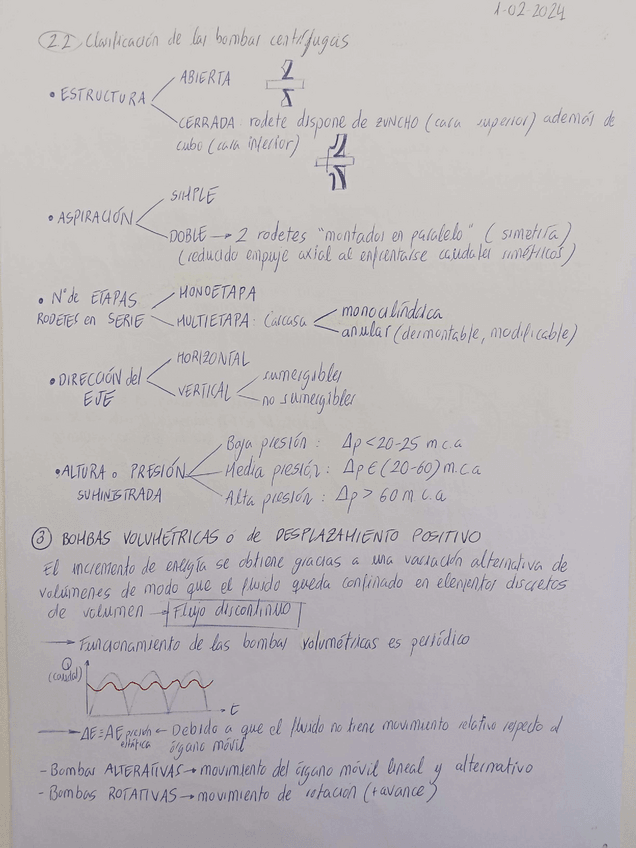 1-02-2024
2.2 Clasificación de las bombas centrífugas
• ESTRUCTURA
ABIERTA
CERRADA: rodete dispone de ZUNCHO (cara superior) además de
cubo (cara inferior)
• ASPIRACIÓN
SIMPLE
DOBLE → 2 rodetes "montados en paralelo" (simetría)
(reducido empuje axial al enfrentarse caudales simétricos)
• Nº de ETAPAS
RODETES en SERIE
MONOETAPA
MULTIETAPA: Carcasa
monocilíndrica
anular (desmontable, modificable)
• DIRECCIÓN del
EJE
HORIZONTAL
VERTICAL
sumergibles
no sumergibles
• ALTURA o PRESIÓN
SUMINISTRADA
Baja presión: Δp < 20-25 m.c.a
Media presión: Δp ∈ (20-60) m.c.a
Alta presión: Δp > 60 m c.a
③ BOMBAS VOLUMÉTRICAS o de DESPLAZAMIENTO POSITIVO
El incremento de energía se obtiene gracias a una variación alternativa de
volúmenes de modo que el fluido queda confinado en elementos discretos
de volumen → Flujo discontinuo
→ Funcionamiento de las bombas volumétricas es periódico
Q
(caudal)
t
→ ΔE ≡ ΔE presión estática ← Debido a que el fluido no tiene movimiento relativo respecto al
órgano móvil
- Bombas ALTERATIVAS → movimiento del órgano móvil lineal y alternativo
- Bombas ROTATIVAS → movimiento de rotación (+avance)